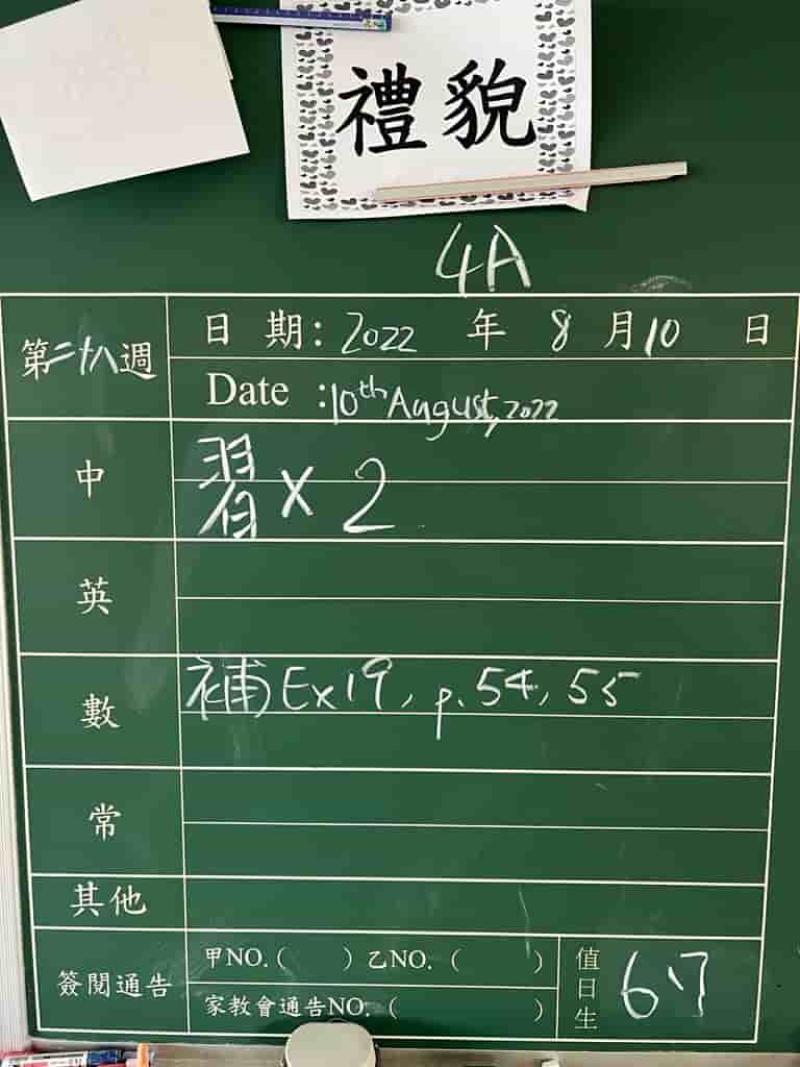 禮貌
4A
第二十八週
日 期：2022 年 8 月 10 日
Date :10th August, 2022
中 習 x 2
英
數 補 Ex19, p.54, 55
常
其他
簽閱通告
甲NO.( ) 乙NO. ( )
家教會通告NO. ( )
值日生 6、7